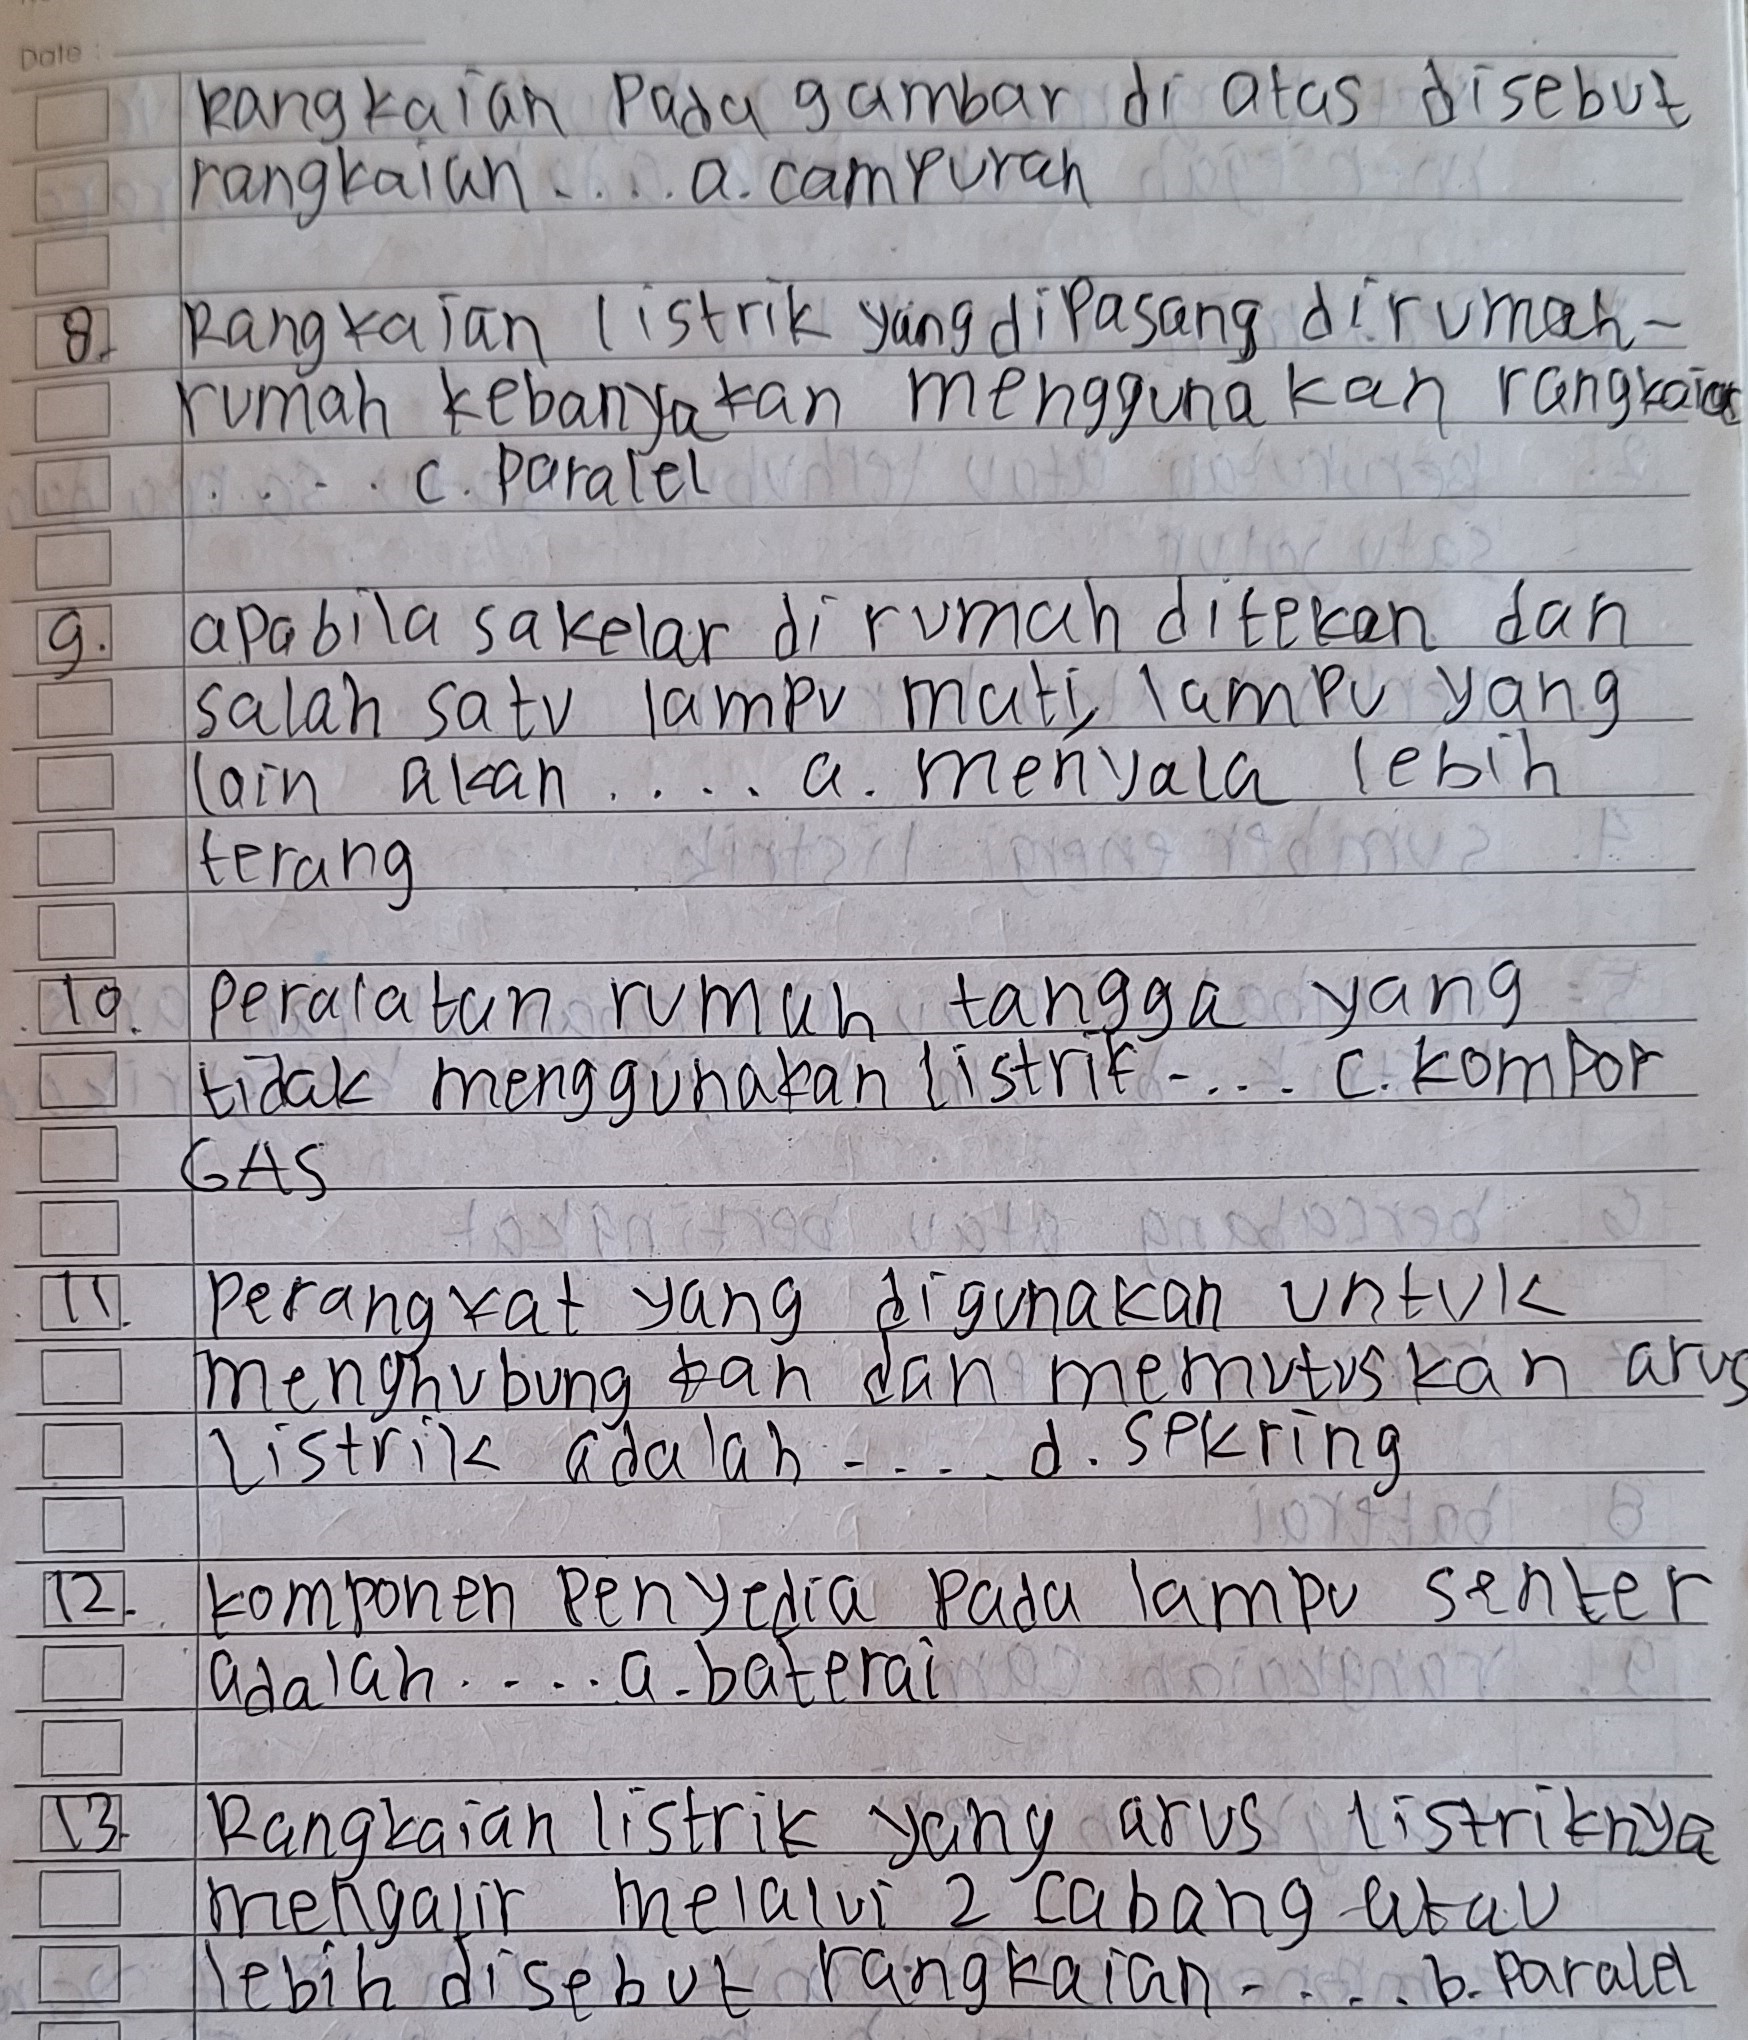 Date :
Rangkaian Pada gambar di atas disebut
rangkaian .... a. campuran
8. Rangkaian listrik yang dipasang dirumah-
rumah kebanyakan menggunakan rangkaian
.... c. Paralel
9. apabila sakelar di rumah ditekan dan
salah satu lampu mati, lampu yang
lain akan .... a. menyala lebih
terang
10. Peralatan rumah tangga yang
tidak menggunakan listrik .... c. kompor
GAS
11. Perangkat yang digunakan untuk
menghubungkan dan memutuskan arus
listrik adalah .... d. sekring
12. komponen Penyedia Pada lampu senter
adalah .... a. baterai
13. Rangkaian listrik yang arus listriknya
mengalir melalui 2 cabang atau
lebih disebut rangkaian .... b. Paralel